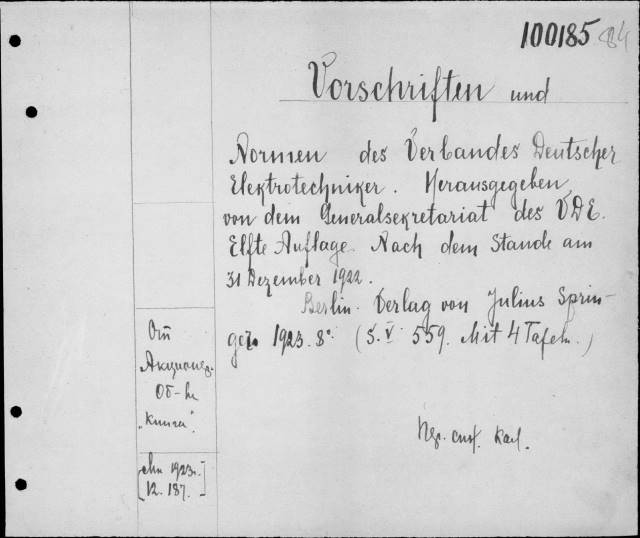 100185
84
Vorschriften und
Normen des Verbandes Deutscher
Elektrotechniker. Herausgegeben
von dem Generalsekretariat des VDE.
Elfte Auflage. Nach dem Stande am
31 Dezember 1922.
Berlin. Verlag von Julius Sprin-
ger. 1923. 8°. (S. V 559. Mit 4 Tafeln.)
От
Акционер.
Об-ва
„Книга".
1923г.
12. 187.